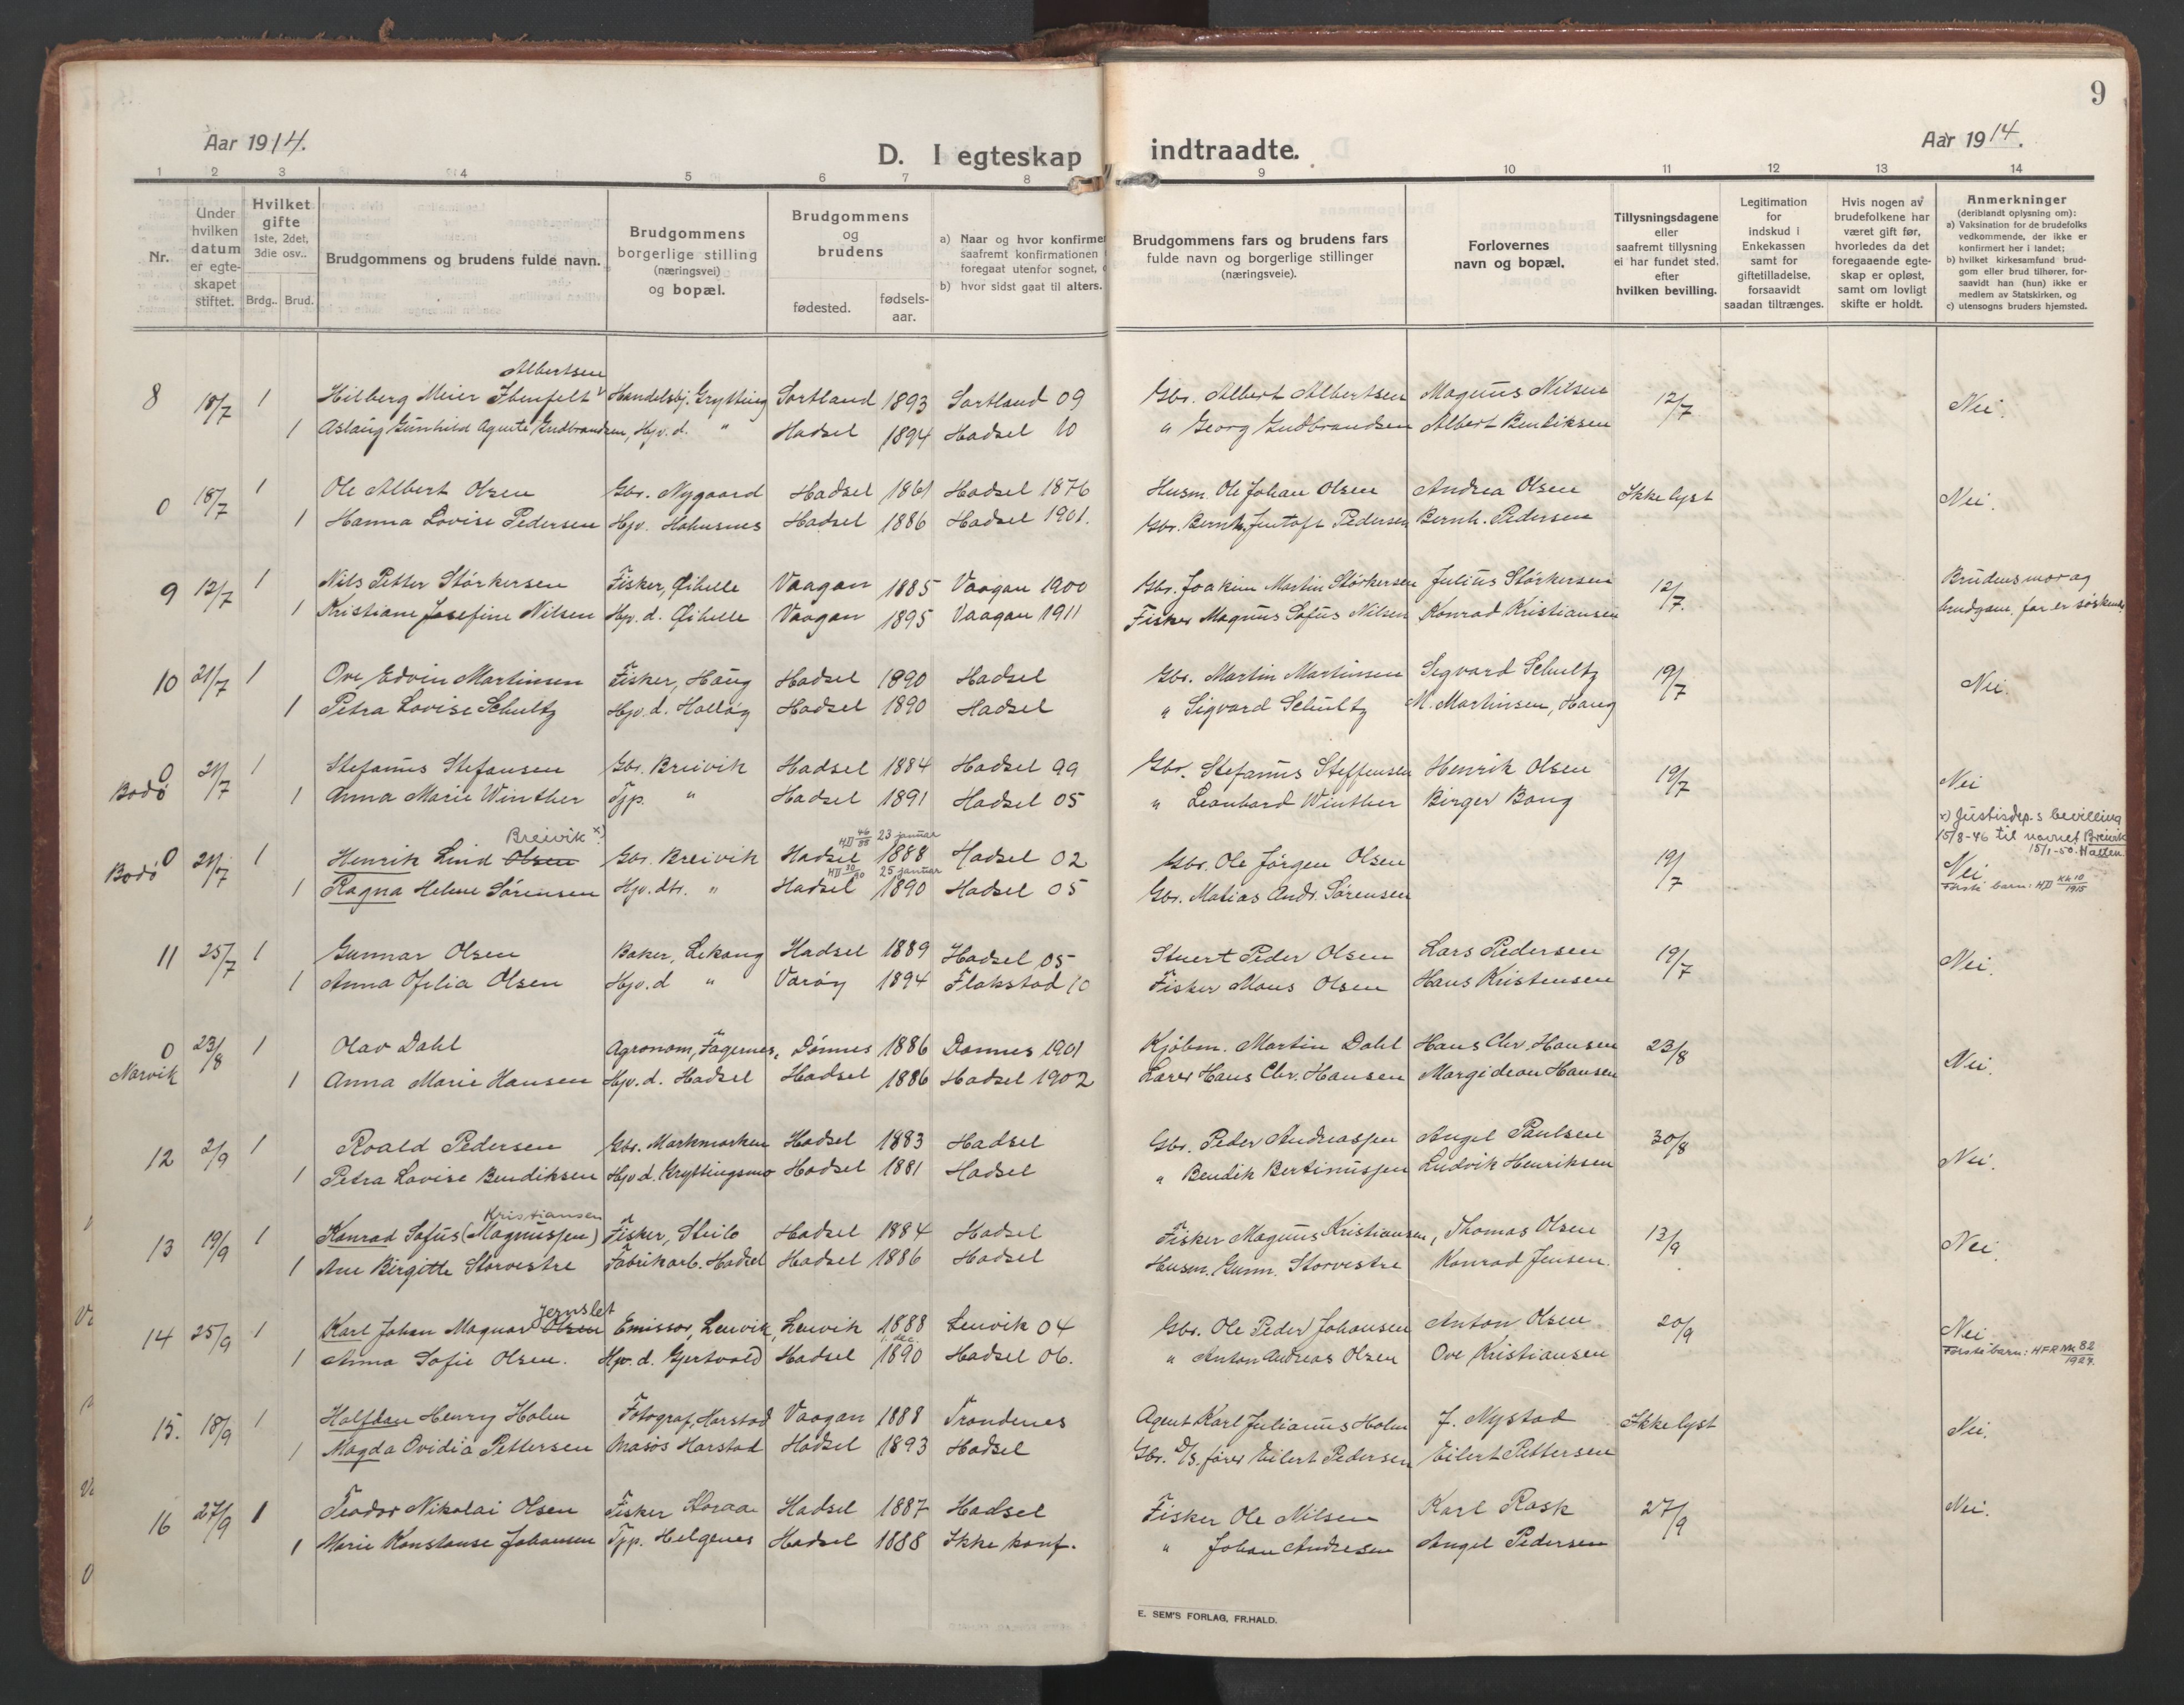 9
Aar 1914. D. I egteskap indtraadte. Aar 1914.
1 2 3 4 5 6 7 8 9 10 11 12 13 14
Nr.
Under hvilken datum er egteskapet stiftet.
Hvilket gifte 1ste, 2det, 3die osv..
Brdg.. Brud.
Brudgommens og brudens fulde navn.
Brudgommens borgerlige stilling (næringsvei) og bopæl.
Brudgommens og brudens
fødested. fødsels-aar.
a) Naar og hvor konfirme
saafremt konfirmationen
foregaat utenfor sognet,
b) hvor sidst gaat til alters.
Brudgommens fars og brudens fars
fulde navn og borgerlige stillinger
(næringsveie).
Forlovernes
navn og bopæl.
Tillysningsdagene
eller
saafremt tillysning
ei har fundet sted,
efter
hvilken bevilling.
Legitimation
for
indskud i
Enkekassen
samt for
giftetilladelse,
forsaavidt
saadan tiltrænges.
Hvis nogen av
brudefolkene har
været gift før,
hvorledes da det
foregaaende egte-
skap er opløst,
samt om lovligt
skifte er holdt.
Anmerkninger
(deriblandt oplysning om):
a) Vaksination for de brudefolks
vedkommende, der ikke er
konfirmert her i landet;
b) hvilket kirkesamfund brud-
gom eller brud tilhører, for-
saavidt han (hun) ikke er
medlem av Statskirken, og
c) utensogns bruders hjemsted.
Albertsen
8 18/7 1 Hilberg Meier Ibenfelt Handelsbj. Grytting Sortland 1893 Sortland 09 Gbr. Albert Albertsen Magnus Nilsen 12/7 Nei.
1 Aslaug Gunhild Agnete Gudbrandsen, Hjv. d. " Hadsel 1894 Hadsel 10 " Georg Gudbrandsen Albert Bendiksen
0 18/7 1 Ole Albert Olsen Gbr. Nygaard Hadsel 1861 Hadsel 1876 Husm. Ole Johan Olsen Andrea Olsen Ikke lyst Nei.
1 Hanna Lovise Pedersen Hjv. Hadsel 1886 Hadsel 1901. Gbr. Bernh. Jentoft Pedersen Bernh. Pedersen
9 12/7 1 Nils Petter Störkersen Fisker, Vaagan 1885 Vaagan 1900 Gbr. Joakim Martin Störkersen Julius Störkersen 12/7. Brudens mor og
1 Kristiane Josefine Nilsen Hjv. d. Vaagan 1895 Vaagan 1911 Fisker Magnus Sofus Nilsen Konrad Kristiansen brudgom. far er søskende.
10 21/7 1 Ove Edvin Martinsen Fisker, Haug Hadsel 1890 Hadsel Gbr. Martin Martinsen Sigvard Schultz 19/7 Nei.
1 Petra Lovise Schultz Hjv. d. Hadsel 1890 Hadsel " Sigvard Schultz M. Martinsen, Haug
0 21/7 1 Stefanus Stefansen Gbr. Breivik Hadsel 1884 Hadsel 99 Gbr. Stefanus Steffensen Henrik Olsen 19/7 Nei
Bodö 1 Anna Marie Winther Tjp. " Hadsel 1891 Hadsel 05 " Leonhard Winther Birger Bang
x) Justisdep.s bevilling
15/8-46 til navnet Breivik
15/1-50. Hatten
Breivik x) HD 46/88 23 januar
0 21/7 1 Henrik Lind Olsen Gbr. Breivik Hadsel 1888 Hadsel 02 Gbr. Ole Jörgen Olsen 19/7 Nei
Bodö HD 10/90 25 januar
1 Ragna Helene Sörensen Hjv. dtr. " Hadsel 1890 Hadsel 05 Gbr. Matias Andr. Sörensen Første barn: HD kk 10/1915
11 25/7 1 Gunnar Olsen Baker, Lekang Hadsel 1889 Hadsel 05 Stuert Peder Olsen Lars Pedersen 19/7 Nei.
1 Anna Ofelia Olsen Hjv. d " Varöy 1894 Flakstad 10 Fisker Mons Olsen Hans Kristensen
0 23/8 1 Olav Dahl Agronom, Fagernes, Dönnes 1886 Dønnes 1901 Kjöbm. Martin Dahl Hans Chr. Hansen 23/8 Nei.
Narvik 1 Anna Marie Hansen Hjv. d. Hadsel Hadsel 1886 Hadsel 1902 Lærer Hans Chr. Hansen Hansen
12 2/9 1 Roald Pedersen Gbr. Markmarken Hadsel 1883 Hadsel Gbr. Peder Andreassen Angel Paulsen 30/8 Nei.
1 Petra Lovise Bendiksen Hjv. d. Gryttingsmo Hadsel 1881 Hadsel " Bendik Bertinussen Ludvik Henriksen
Kristiansen
13 19/9 1 Konrad Sofus (Magnussen) Fisker, Steilo Hadsel 1884 Hadsel Fisker Magnus Kristiansen, Thomas Olsen 13/9 Nei.
1 Ane Birgitte Storvestre Fabrikarb. Hadsel Hadsel 1886 Hadsel Husm. Gunn. Storvestre Konrad Jensen.
Jernslet
14 25/9 1 Karl Johan Magnar Olsen Emissær, Lenvik, Lenvik 1888 Lenvik 04 Gbr. Ole Peder Johansen Anton Olsen 20/9 Nei
1. dec.
1 Anna Sofie Olsen. Hjv. d. Gjertvold Hadsel 1890 Hadsel 06. " Anton Andreas Olsen Ove Kristiansen Første barn: HFR Nk 82/1927.
15. 18/9 1 Halfdan Henry Holm Fotograf, Harstad Vaagan 1888 Trondenes Agent Karl Julianus Holm J. Nystad Ikke lyst Nei.
1 Magda Ovidia Pettersen Harstad Hadsel 1893 Hadsel Gbr. D/S. fører Eilert Pedersen Eilert Pettersen
16 27/9 1 Teodor Nikolai Olsen Fisker Storaa Hadsel 1887 Hadsel Fisker Ole Nilsen Karl Rask 27/9 Nei.
1 Marie Konstanse Johansen Tjp. Helgenes Hadsel 1888 Ikke konf. " Johan Andresen Angel Pedersen
E. SEM'S FORLAG, FR.HALD.